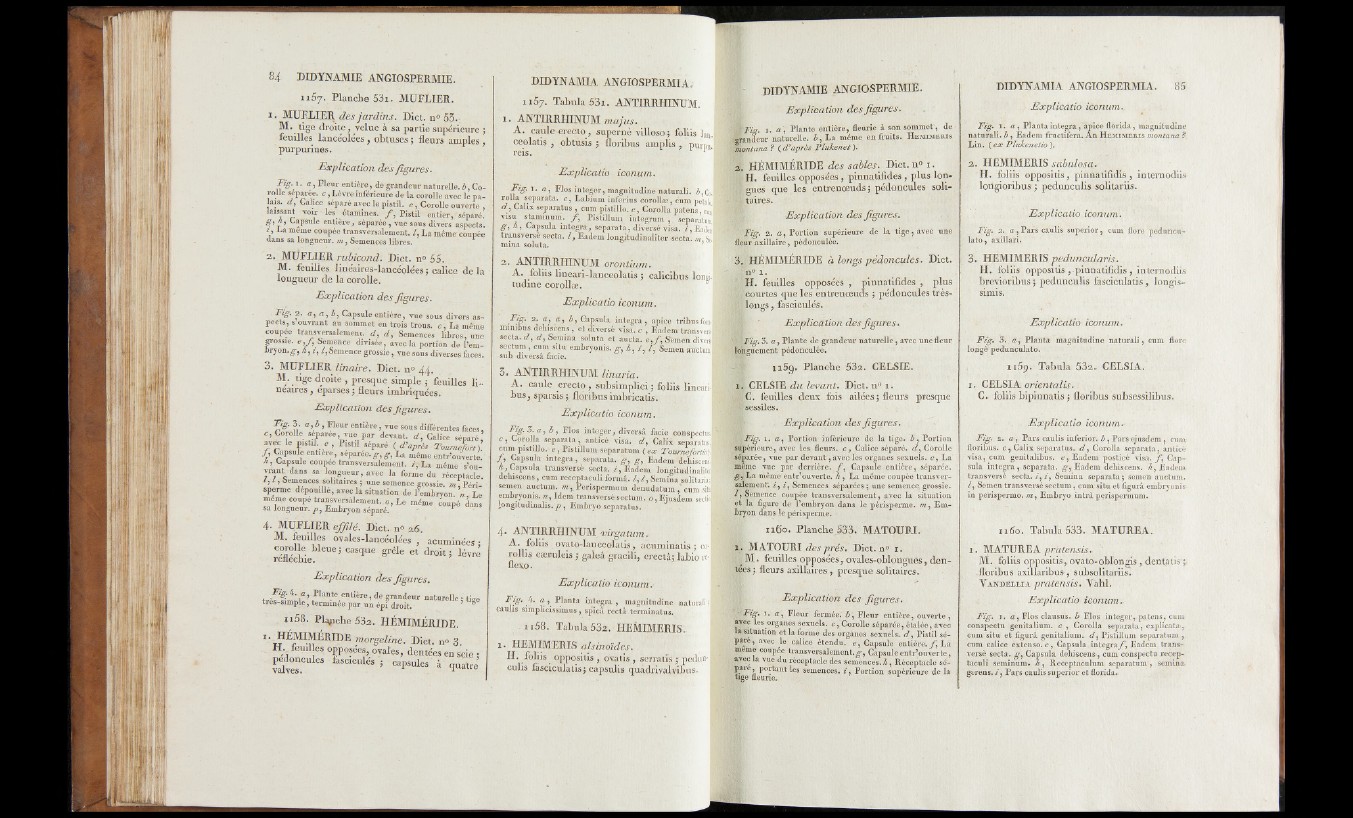 84 DIDYNAMIE ANGIOSPERMIE.
1157. Planche 531. MUFLIER.
1. MUFLIER des jardins. Dict. n° 53.
M. tige droite, velue à sa partie supérieure ;
feuilles lancéolées, obtuses ; fleurs amples,
purpurines.
Explication des figures.
Fig. 1. a, Fleur entière, de grandeur naturelle. b, Co-
rolle séparée. c, Lèvre inférieure de la corolle avec le pa-
lais. d, Calice séparé avec le pistil. e, Corolle ouverte,
laissant voir les étamines. f, Pistil entier, séparé.
g, h, Capsule entière, séparée, vue sous divers aspects.
i, La même coupée transversalement. l, La même coupée
dans sa longueur. m, Semences libres.
2. MUFLIER rubicond. Dict. n° 55.
M. feuilles linéaires-lancéolées ; calice de la
longueur de la corolle.
Explication des figures.
Fig. 2. a, a, b, Capsule entière, vue sous divers as-
pects, s'ouvrant au sommet en trois trous. c, La même
coupée transversalement. d, d, Semences libres, une
grossie. e, f, Semence divisée, avec la portion de l'em-
bryon. g, h, i, l, Semence grossie, vue sous diverses faces.
3. MUFLIER linaire. Dict. n° 44.
M. tige droite, presque simple ; feuilles li-
néaires, éparses ; fleurs imbriquées.
Explication des figures.
Fig. 3. a, b, Fleur entière, vue sous différentes faces,
c, Corolle séparée, vue par devant. d, Calice séparé,
avec le pistil. e, Pistil séparé ( d'après Tournefort ).
f, Capsule entière, séparée. g, g, La même entr'ouverte.
h, Capsule coupée transversalement. i, La même s'ou-
vrant dans sa longueur, avec la forme du réceptacle.
l, l, Semences solitaires ; une semence grossie. m, Péri-
sperme dépouillé, avec la situation de l'embryon. n, Le
même coupé transversalement. o, Le même coupé dans
sa longueur. p, Embryon séparé.
4. MUFLIER effilé. Dict. n° 26.
M. feuilles ovales-lancéolées, acuminées ;
corolle bleue ; casque grêle et droit ; lèvre
réfléchie.
Explication des figures.
Fig. 4. a, Plante entière, de grandeur naturelle ; tige
très-simple, terminée par un épi droit.
1158. Planche 532. HÉMIMÉRIDE.
1. HÉMIMÉRIDE morgeline. Dict. n° 3.
H. feuilles opposées, ovales, dentées en scie ;
pédoncules fasciculés ; capsules à quatre
valves.
DIDYNAMIA ANGIOSPERMIA.
1157. Tabula 531. ANTIRRHINUM.
1. ANTIRRHINUM majus.
A. caule erecto, supernè villoso ; foliis lan-
ceolatis, obtusis ; floribus amplis, purpu-
reis.
Explicatio iconum.
Fig. 1. a, Flos integer, magnitudine naturali. b, Co-
rolla separata. c, Labium inferius corollæ, cum
d, Calix separatus, cum pistillo. e, Corolla patens, cum
visu staminum. f, Pistillum integrum,
g, h, Capsula integra, separata, diversè visa. i, Eadem
transversè secta. l, Eadem longitudinaliter secta. m, Se-
mina soluta.
2. ANTIRRHINUM orontium.
A. foliis lineari-lanceolatis ; calicibus longi-
tudine corollæ.
Explicatio iconum.
Fig. 2. a, a, b, Capsula integra, apice tribus
minibus dehiscens, et diversè visa. c, Eadem transversè
secta. d, d, Semina soluta et aucta. e, f, Semen
sectum, cum situ embryonis. g, h, i, l, Semen auctum
sub diversâ facie.
3. ANTIRRHINUM linaria.
A. caule erecto, subsimplici ; foliis lineari-
bus, sparsis ; floribus imbricatis.
Explicatio iconum.
Fig. 3. a, b, Flos integer, diversâ facie conspectus.
c, Corolla separata, anticè visa. d, Calix separatus,
cum pistillo. e, Pistillum separatum ( ex Tournefortio ).
f, Capsula integra, separata. g, g, Eadem dehiscens.
h, Capsula transversè secta. i, Eadem longitudinaliter
dehiscens, cum receptaculi formâ. l, l, Semina solitaria ;
semen auctum. m, Perispermum denudatum, cum situ
embryonis. n, Idem transversè sectum. o, Ejusdem sectio
longitudinalis. p, Embryo separatus.
4. ANTIRRHINUM virgatum.
A. foliis ovato-lanceolatis, acuminatis ; co-
rollis cæruleis ; galeâ gracili, erectâ ; labio re-
flexo.
Explicatio iconum.
Fig. 4. a, Planta integra, magnitudine naturali :
caulis simplicissimus, spicâ rectâ terminatus.
1158. Tabula 532. HEMIMERIS.
1. HEMIMERIS alsinoïdes.
H. foliis oppositis, ovatis, serratis ; pedun-
culis fasciculatis ; capsulis quadrivalvibus.
DIDYNAMIE ANGIOSPERMIE.
Explication des figures.
Fig. 1. a, Plante entière, fleurie à son sommet, de
grandeur naturelle. b, La même en fruits. HEMIMERIS
montana ? ( d'après Plukenet ).
2. HÉMIMÉRIDE des sables. Dict. n° 1.
H. feuilles opposées, pinnatifides, plus lon-
gues que les entrenœuds ; pédoncules soli-
taires.
Explication des figures.
Fig. 2. a, Portion supérieure de la tige, avec une
fleur axillaire, pédonculée.
3. HÉMIMÉRIDE à longs pédoncules. Dict.
n° 1.
H. feuilles opposées, pinnatifides, plus
courtes que les entrenœuds ; pédoncules très-
longs, fasciculés.
Explication des figures.
Fig. 3. a, Plante de grandeur naturelle, avec une fleur
longuement pédonculée.
1159. Planche 532. CELSIE.
1. CELSIE du levant. Dict. n° 1.
C. feuilles deux fois ailées ; fleurs presque
sessiles.
Explication des figures.
Fig. 1. a, Portion inférieure de la tige. b, Portion
supérieure, avec les fleurs. c, Calice séparé. d, Corolle
séparée, vue par devant, avec les organes sexuels. e, La
même vue par derrière. f, Capsule entière, séparée.
g, La même entr'ouverte. h, La même coupée transver-
salement. i, i, Semences séparées ; une semence grossie.
l, Semence coupée transversalement, avec la situation
et la figure de l'embryon dans le périsperme. m, Em-
bryon dans le périsperme.
1160. Planche 533. MATOURI.
1. MATOURI des prés. Dict. n° 1.
M. feuilles opposées, ovales-oblongues, den-
tées ; fleurs axillaires, presque solitaires.
Explication des figures.
Fig. 1. a, Fleur fermée. b, Fleur entière, ouverte,
avec les organes sexuels. c, Corolle séparée, étalée, avec
la situation et la forme des organes sexuels. d, Pistil sé-
paré, avec le calice étendu. e, Capsule entière. f, La
même coupée transversalement. g, Capsule entr'ouverte,
avec la vue du réceptacle des semences. h, Réceptacle sé-
paré, portant les semences. i, Portion supérieure de la
tige fleurie.
DIDYNAMIA ANGIOSPERMIA. 85
Explicatio iconum.
Fig. 1. a, Planta integra, apice florida, magnitudine
naturali. b, Eadem fructifera. An HEMIMERIS montana ?
Lin. ( ex Plukenetio ).
2. HEMIMERIS sabulosa.
H. foliis oppositis, pinnatifidis, internodiis
longioribus ; pedunculis solitariis.
Explicatio iconum.
Fig. 2. a, Pars caulis superior, cum flore peduncu-
lato, axillari.
3. HEMIMERIS peduncularis.
H. foliis oppositis, pinnatifidis, internodiis
brevioribus ; pedunculis fasciculatis, longis-
simis.
Explicatio iconum.
Fig. 3. a, Planta magnitudine naturali, cum flore
longè pedunculato.
1159. Tabula 532. CELSIA.
1. CELSIA orientalis.
C. foliis bipinnatis ; floribus subsessilibus.
Explicatio iconum.
Fig. 1. a, Pars caulis inferior. b, Pars ejusdem, cum
floribus. c, Calix separatus. d, Corolla separata, anticè
visa, cum genitalibus. e, Eadem posticè visa. f, Cap-
sula integra, separata. g, Eadem dehiscens. h, Eadem
transversè secta. i, i, Semina separata ; semen auctum.
l, Semen transversè sectum, cum situ et figurâ embryonis
in perispermo. m, Embryo intrà perispermum.
1160. Tabula 533. MATUREA.
1. MATUREA pratensis.
M. foliis oppositis, ovato-oblongis, dentatis ;
floribus axillaribus, subsolitariis.
VANDELLIA pratensis. Vahl.
Explicatio iconum.
Fig. 1. a, Flos clausus. b Flos integer, patens, cum
conspectu genitalium. c, Corolla separata, explicata,
cum situ et figurâ genitalium. d, Pistillum separatum,
cum calice extenso. e, Capsula integra f, Eadem trans-
versè secta. g, Capsula dehiscens, cum conspectu recep-
taculi seminum. h, Receptaculum separatum, semina
gerens. i, Pars caulis superior et florida.